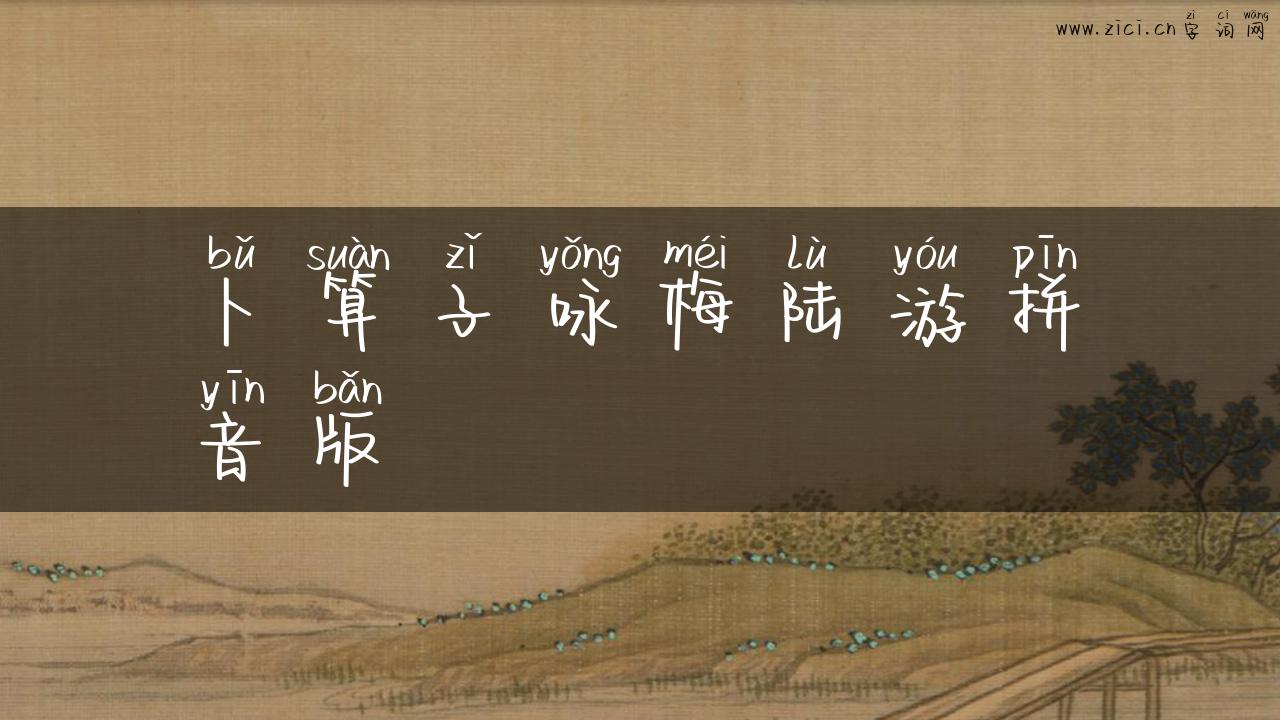 zì cí wǎng
www.zici.cn 字 词 网
bǔ suàn zǐ yǒng méi lù yóu pīn
卜 算 子 咏 梅 陆 游 拼
yīn bǎn
音 版